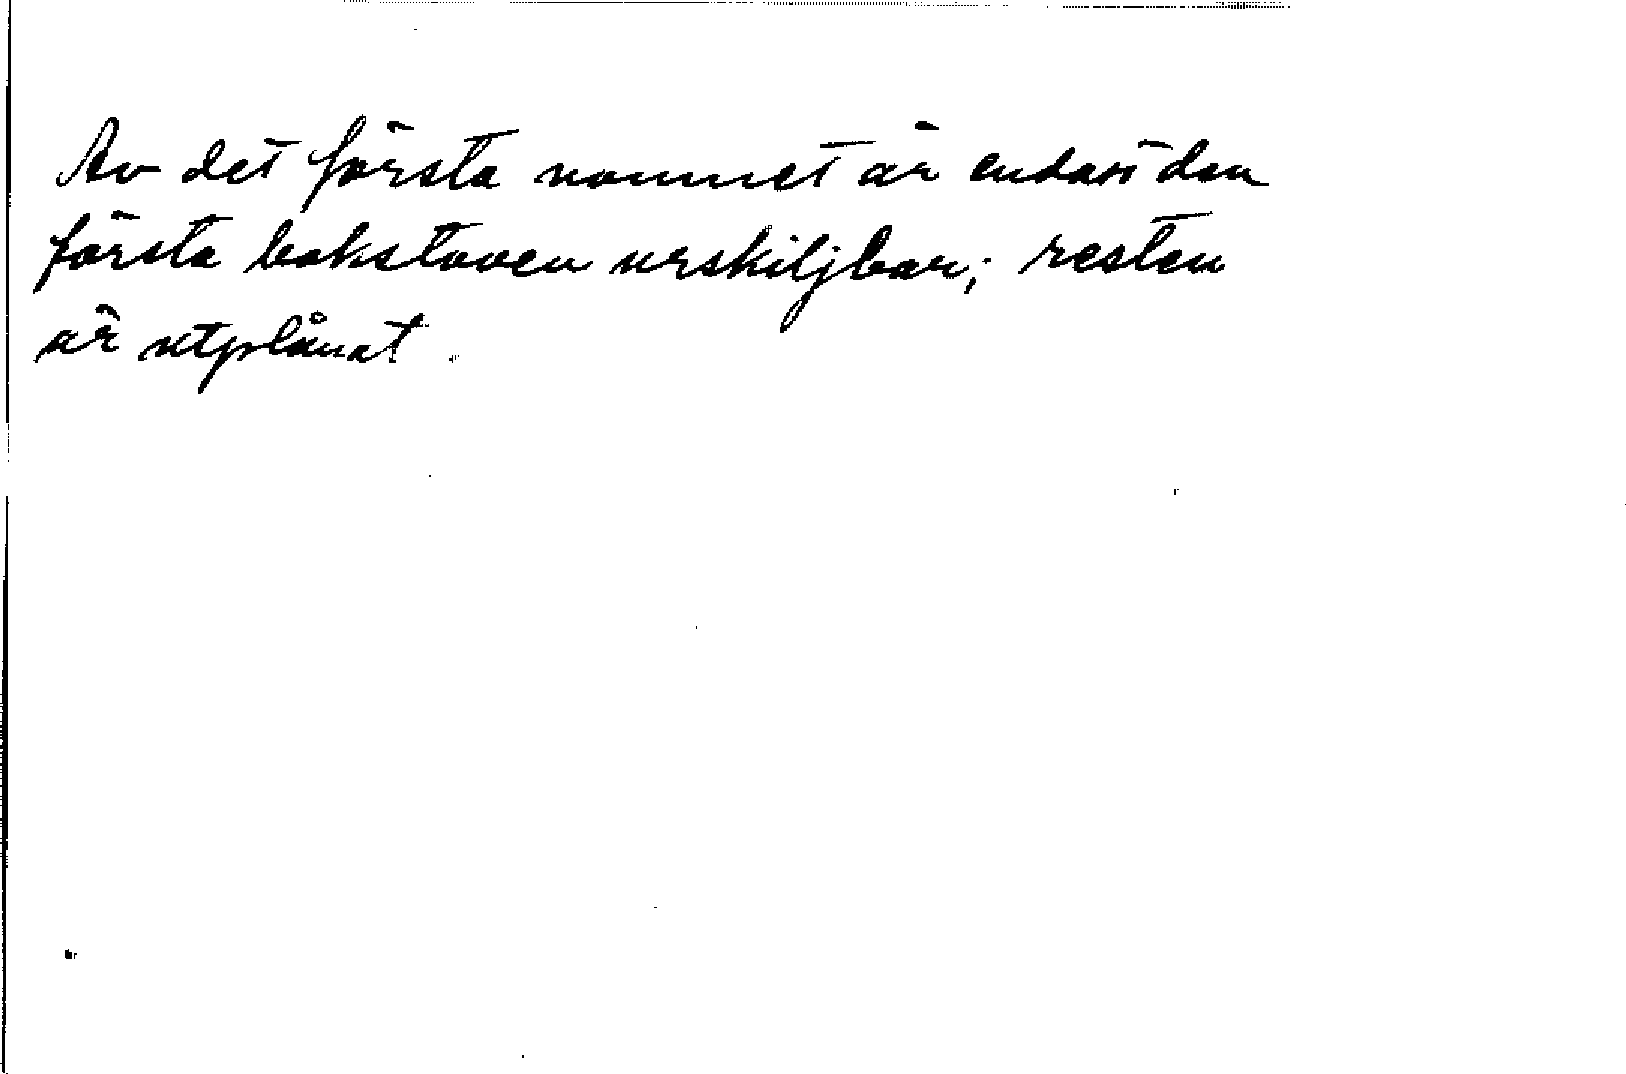 Av det första namnet är endast den
första bokstaven urskiljbar; resten
är utplånat.